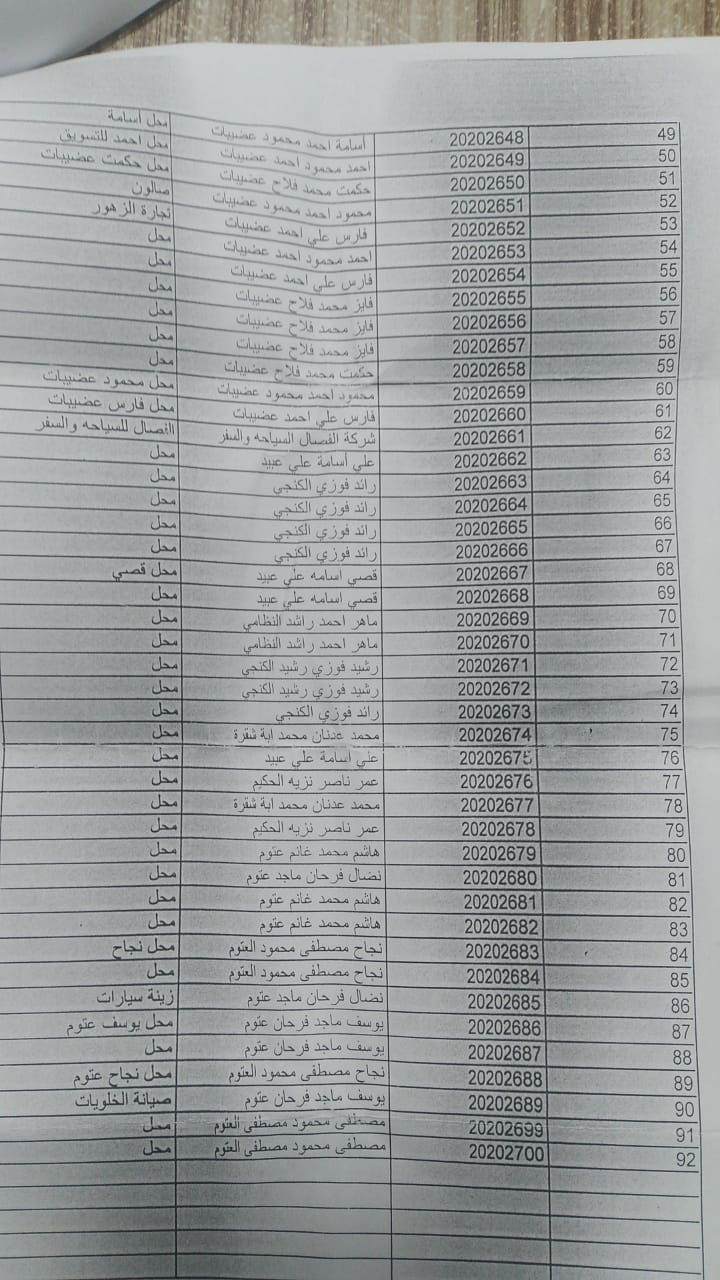 49 20202648 أسامة احمد محمود عضيبات محل أسامة
50 20202649 احمد محمود احمد عضيبات محل احمد للتسويق
51 20202650 حكمت محمد فلاح عضيبات محل حكمت عضيبات
52 20202651 محمود احمد محمود عضيبات صالون
53 20202652 فارس علي احمد عضيبات تجارة الزهور
54 20202653 احمد محمود احمد عضيبات محل
55 20202654 فارس علي احمد عضيبات محل
56 20202655 فايز محمد فلاح عضيبات محل
57 20202656 فايز محمد فلاح عضيبات محل
58 20202657 فايز محمد فلاح عضيبات محل
59 20202658 حكمت محمد فلاح عضيبات محل
60 20202659 محمود احمد محمود عضيبات محل محمود عضيبات
61 20202660 فارس علي احمد عضيبات محل فارس عضيبات
62 20202661 شركة الفصال السياحه والسفر الفصال للسياحه والسفر
63 20202662 علي أسامة علي عبيد محل
64 20202663 رائد فوزي الكنجي محل
65 20202664 رائد فوزي الكنجي محل
66 20202665 رائد فوزي الكنجي محل
67 20202666 رائد فوزي الكنجي محل
68 20202667 قصي اسامه علي عبيد محل قصي
69 20202668 قصي اسامه علي عبيد محل
70 20202669 ماهر احمد راشد النظامي محل
71 20202670 ماهر احمد راشد النظامي محل
72 20202671 رشيد فوزي رشيد الكنجي محل
73 20202672 رشيد فوزي رشيد الكنجي محل
74 20202673 رائد فوزي الكنجي محل
75 20202674 محمد عدنان محمد ابة شقرة محل
76 20202675 علي اسامة علي عبيد محل
77 20202676 عمر ناصر نزيه الحكيم محل
78 20202677 محمد عدنان محمد ابة شقرة محل
79 20202678 عمر ناصر نزيه الحكيم محل
80 20202679 هاشم محمد غانم عتوم محل
81 20202680 نضال فرحان ماجد عتوم محل
82 20202681 هاشم محمد غانم عتوم محل
83 20202682 هاشم محمد غانم عتوم محل
84 20202683 نجاح مصطفى محمود العتوم محل نجاح
85 20202684 نجاح مصطفى محمود العتوم محل
86 20202685 نضال فرحان ماجد عتوم زينة سيارات
87 20202686 يوسف ماجد فرحان عتوم محل يوسف عتوم
88 20202687 يوسف ماجد فرحان عتوم محل
89 20202688 نجاح مصطفى محمود العتوم محل نجاح عتوم
90 20202689 يوسف ماجد فرحان عتوم صيانة الخلويات
91 20202699 مصطفى محمود مصطفى العتوم محل
92 20202700 مصطفى محمود مصطفى العتوم محل